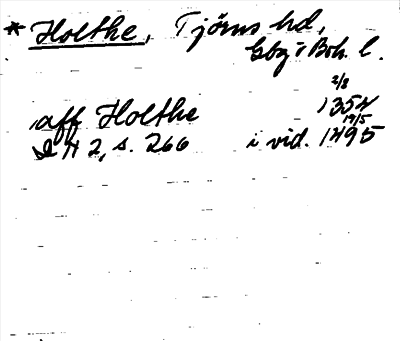 * Holthe, Tjörns hd,
Gbg o Boh. l.
2/8
aff Holthe 1354
17/5
D N 2, s. 266 i vid. 1495